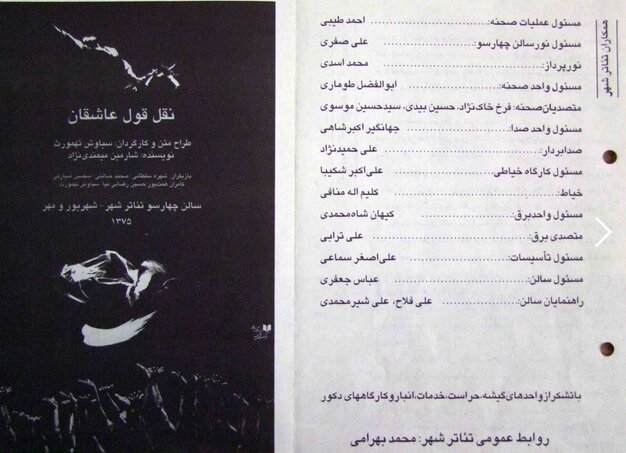 همکاران تئاتر شهر
مسئول عملیات صحنه: احمد طیبی
مسئول نور سالن چهارسو: علی صفری
نورپرداز: محمد اسدی
مسئول واحد صحنه: ابوالفضل طوماری
متصدیان صحنه: فرخ خاک‌نژاد، حسین بیدی، سیدحسین موسوی
مسئول واحد صدا: جهانگیر اکبرشاهی
صدابردار: علی حمیدنژاد
مسئول کارگاه خیاطی: علی‌اکبر شکیبا
خیاط: کلیم اله منافی
مسئول واحد برق: کیهان شاه‌محمدی
متصدی برق: علی ترابی
مسئول تأسیسات: علی‌اصغر سماعی
مسئول سالن: عباس جعفری
راهنمایان سالن: علی فلاح، علی شیرمحمدی
با تشکر از واحدهای گیشه، حراست، خدمات، انبار و کارگاههای دکور
روابط عمومی تئاتر شهر: محمد بهرامی
نقل قول عاشقان
طراح متن و کارگردان: سیاوش تهمورث
نویسنده: شارمین میمندی‌نژاد
بازیگران: شهره سلطانی محمد صادقی محسن
حسین رضائی نیا سیاوش تهمورث
سالن چهارسو تئاتر شهر - شهریور و مهر
۱۳۷۵